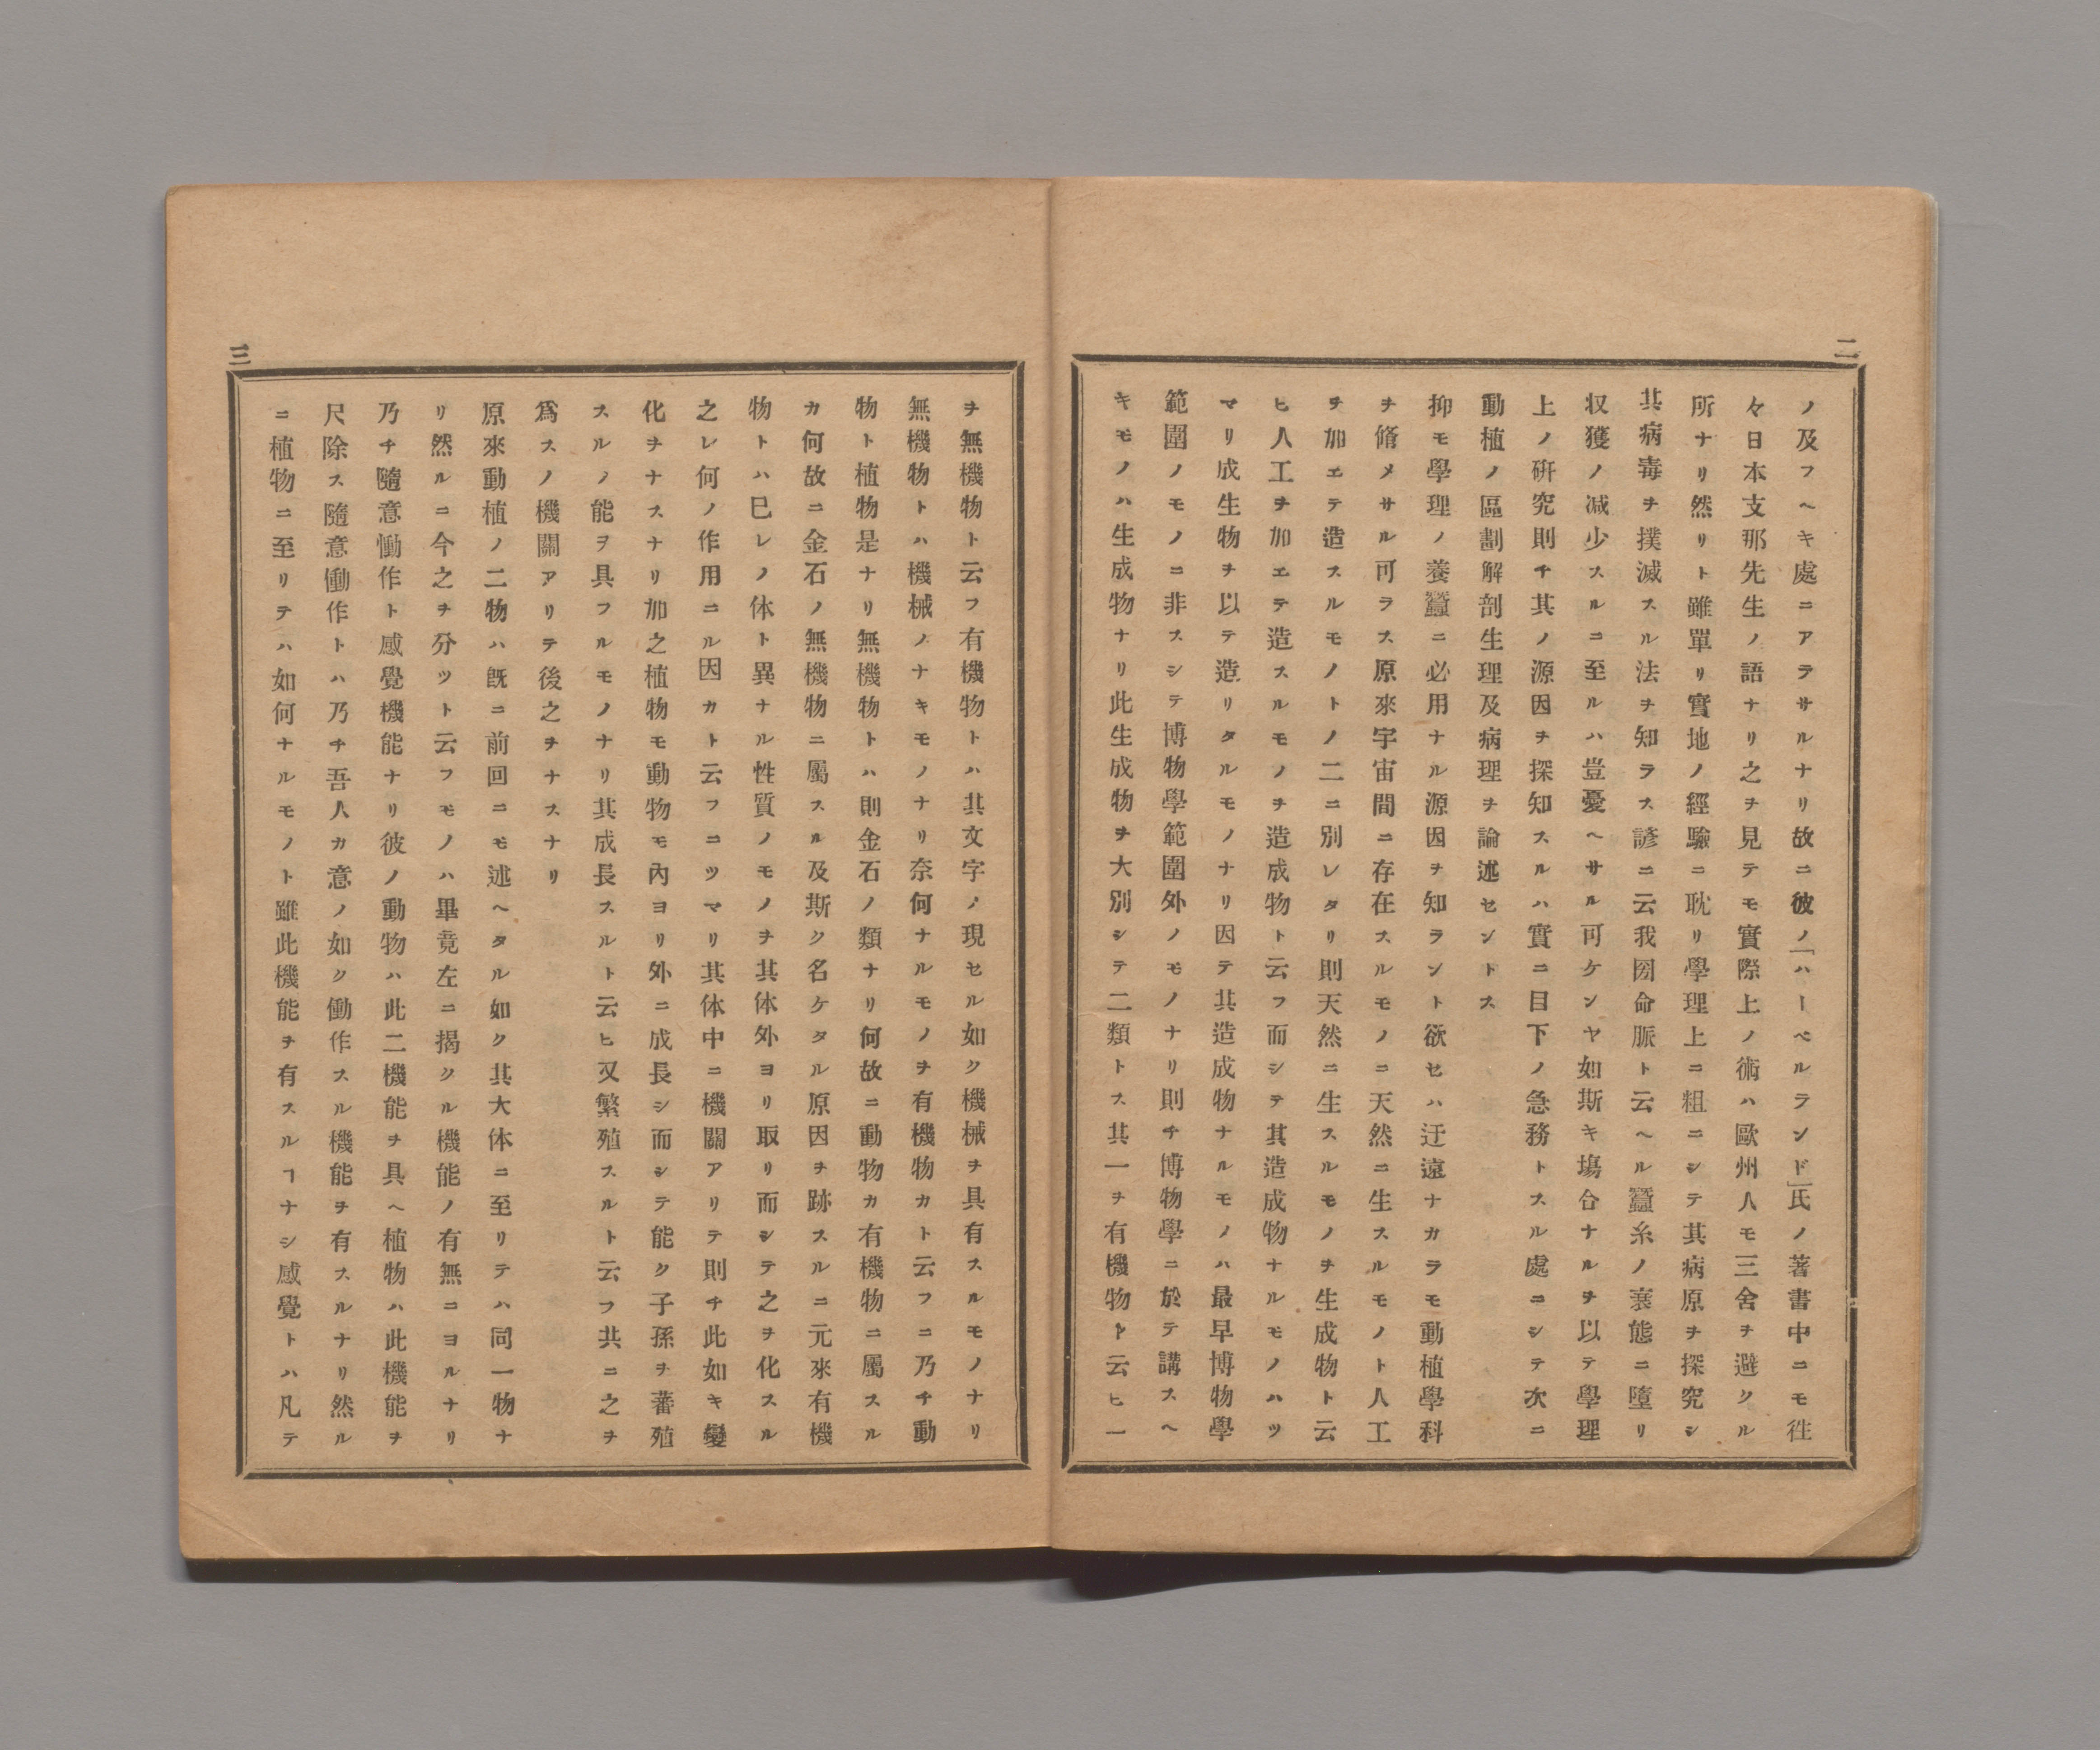 二
ノ及フヘキ處ニアラサルナリ故ニ彼ノ「ハーベルランド」氏ノ著書中ニモ徃
々日本支那先生ノ語ナリ之ヲ見テモ實際上ノ術ハ歐州人モ三舍ヲ避クル
所ナリ然リト雖單リ實地ノ經驗ニ耽リ學理上ニ粗ニシテ其病原ヲ探究シ
其病毒ヲ撲滅スル法ヲ知ラス諺ニ云我圀命脈ト云ヘル蠶糸ノ衰態ニ墮リ
収獲ノ減少スルニ至ルハ豈憂ヘサル可ケンヤ如斯キ塲合ナルヲ以テ學理
上ノ硏究則チ其ノ源因ヲ探知スルハ實ニ目下ノ急務トスル處ニシテ次ニ
動植ノ區劃解剖生理及病理ヲ論述セントス
抑モ學理ノ養蠶ニ必用ナル源因ヲ知ラント欲セハ迂遠ナカラモ動植學科
ヲ脩メサル可ラス原來宇宙間ニ存在スルモノニ天然ニ生スルモノト人工
ヲ加エテ造スルモノトノ二ニ別レタリ則天然ニ生スルモノヲ生成物ト云
ヒ人工ヲ加エテ造スルモノヲ造成物ト云フ而シテ其造成物ナルモノハツ
マリ成生物ヲ以テ造リタルモノナリ因テ其造成物ナルモノハ最早博物學
範圍ノモノニ非スシテ博物學範圍外ノモノナリ則チ博物學ニ於テ講スヘ
キモノハ生成物ナリ此生成物ヲ大別シテ二類トス其一ヲ有機物ト云ヒ一
三
ヲ無機物ト云フ有機物トハ其文字ノ現セル如ク機械ヲ具有スルモノナリ
無機物トハ機械ノナキモノナリ奈何ナルモノヲ有機物カト云フニ乃チ動
物ト植物是ナリ無機物トハ則金石ノ類ナリ何故ニ動物カ有機物ニ屬スル
カ何故ニ金石ノ無機物ニ屬スル及斯ク名ケタル原因ヲ跡スルニ元來有機
物トハ巳レノ体ト異ナル性質ノモノヲ其体外ヨリ取リ而シテ之ヲ化スル
之レ何ノ作用ニル因カト云フニツマリ其体中ニ機關アリテ則チ此如キ變
化ヲナスナリ加之植物モ動物モ內ヨリ外ニ成長シ而シテ能ク子孫ヲ蕃殖
スルノ能ヲ具フルモノナリ其成長スルト云ヒ又繁殖スルト云フ共ニ之ヲ
爲スノ機關アリテ後之ヲナスナリ
原來動植ノ二物ハ既ニ前回ニモ述ヘタル如ク其大体ニ至リテハ同一物ナ
リ然ルニ今之ヲ分ツト云フモノハ畢竟左ニ揭クル機能ノ有無ニヨルナリ
乃チ隨意働作ト感覺機能ナリ彼ノ動物ハ此二機能ヲ具ヘ植物ハ此機能ヲ
尺除ス隨意働作トハ乃チ吾人カ意ノ如ク働作スル機能ヲ有スルナリ然ル
ニ植物ニ至リテハ如何ナルモノト雖此機能ヲ有スルヿナシ感覺トハ凡テ